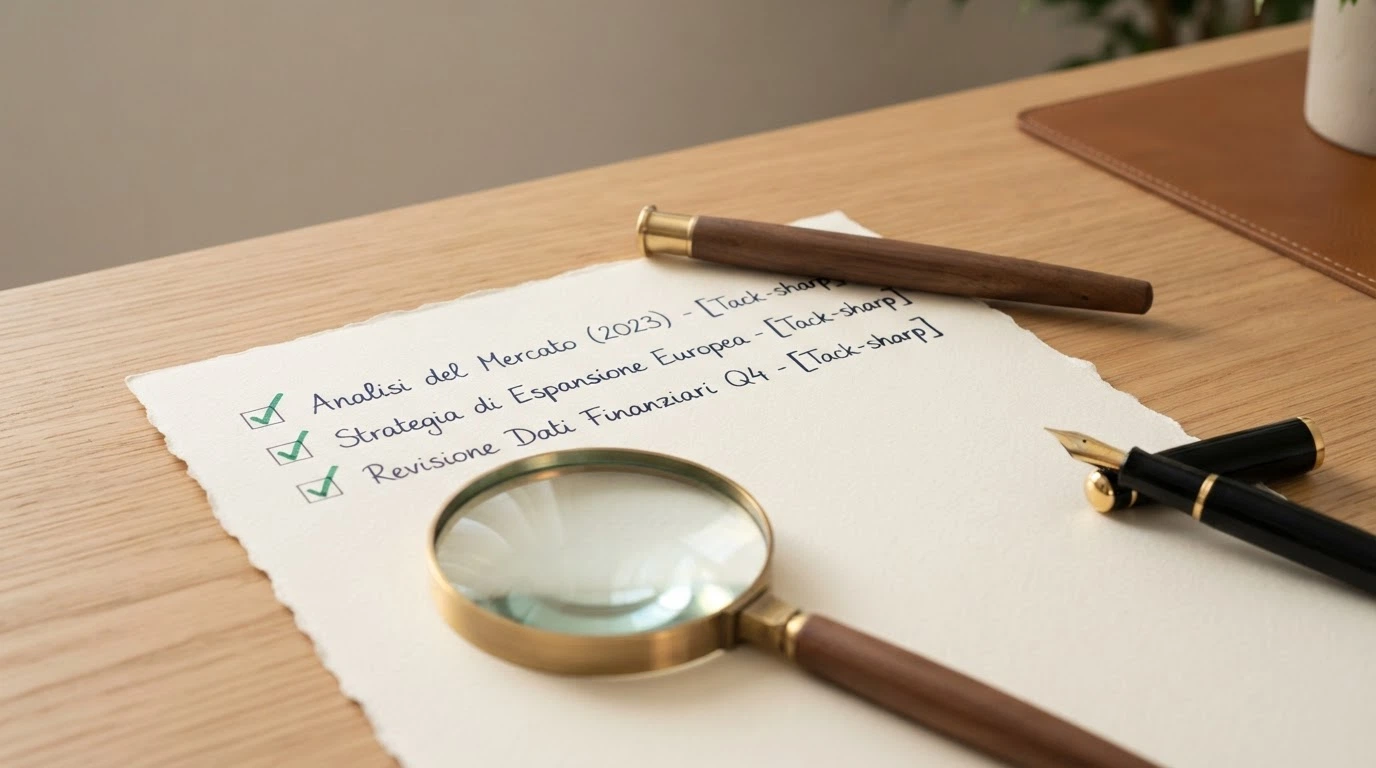 Analisi del Mercato (2023) - [Tack-sharp]
Strategia di Espansione Europea - [Tack-sharp]
Revisione Dati Finanziari Q4 - [Tack-sharp]